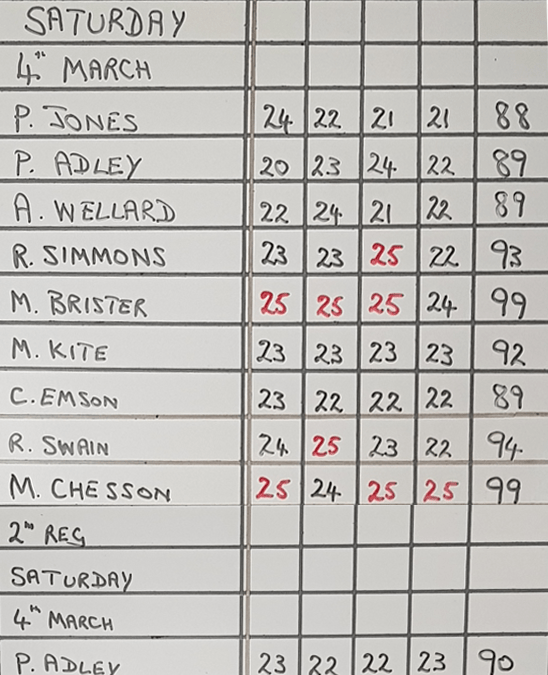 SATURDAY
4TH MARCH
P. JONES 24 22 21 21 88
P. ADLEY 20 23 24 22 89
A. WELLARD 22 24 21 22 89
R. SIMMONS 23 23 25 22 93
M. BRISTER 25 25 25 24 99
M. KITE 23 23 23 23 92
C. EMSON 23 22 22 22 89
R. SWAIN 24 25 23 22 94
M. CHESSON 25 24 25 25 99
2ND REG
SATURDAY
4TH MARCH
P. ADLEY 23 22 22 23 90